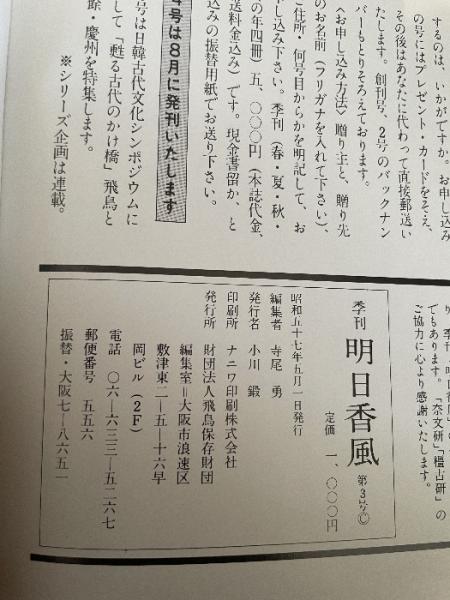 するのは、いかがですか。お申し込み
の号にはプレゼント・カードをそえ、
その後はあなたに代わって直接郵送い
たします。創刊号、2号のバックナン
バーもとりそろえております。
〈お申し込み方法〉贈り主と、贈り先
のお名前(フリガナを入れて下さい)、
ご住所・何号目からかを明記して、お
申し込み下さい。季刊(春・夏・秋・
の年四冊)五、〇〇〇円(本誌代金、
送料金込み)です。現金書留か、と
込みの振替用紙でお送り下さい。
4号は8月に発刊いたします
号は日韓古代文化シンポジウムに
して「甦る古代のかけ橋」飛鳥と
餘・慶州を特集します。
※シリーズ企画は連載。
でもあります。「奈文研」「橿古研」の
ご協力に心より感謝いたします。
季刊 明日香風 第3号©
定価 一、〇〇〇円
昭和五十七年五月一日発行
編集者 寺尾 勇
発行名 小川 鍛
印刷所 ナニワ印刷株式会社
発行所 財団法人飛鳥保存財団
編集室=大阪市浪速区
敷津東二―五―十六早
岡ビル(2F)
電話 〇六―六三三―五二六七
郵便番号 五五六
振替・大阪七―八六五一